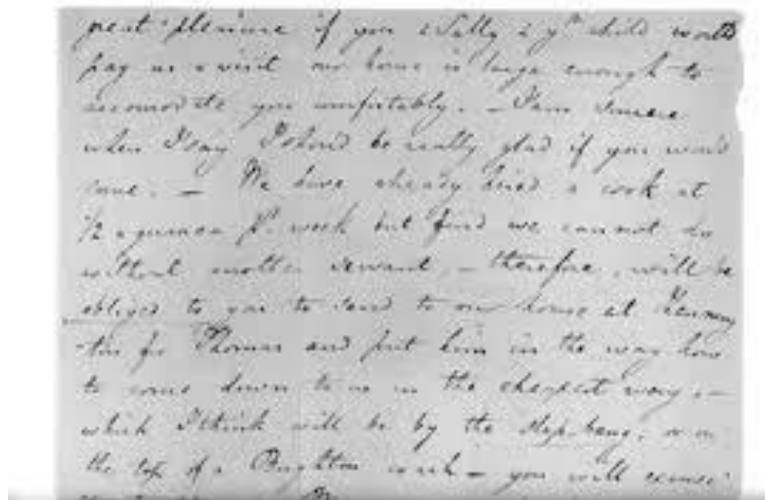 great pleasure if you & Sally & yr child would
pay us a visit our house is large enough to
accomodate you comfortably. – I am sincere
when I say I should be really glad if you would
come. – We have already hired a cook at
1/2 a guinea pr. week but find we cannot do
without another servant – therefore, will be
obliged to you to send to our house at Kenning
-ton for Thomas and put him in the way how
to come down to us in the cheapest way. –
which I think will be by the
the top of a Brighton coach – you will excuse